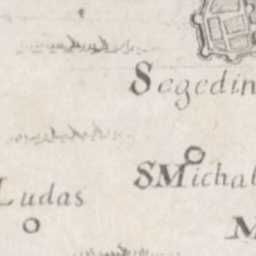 Segedin
SMichal
Ludas
M